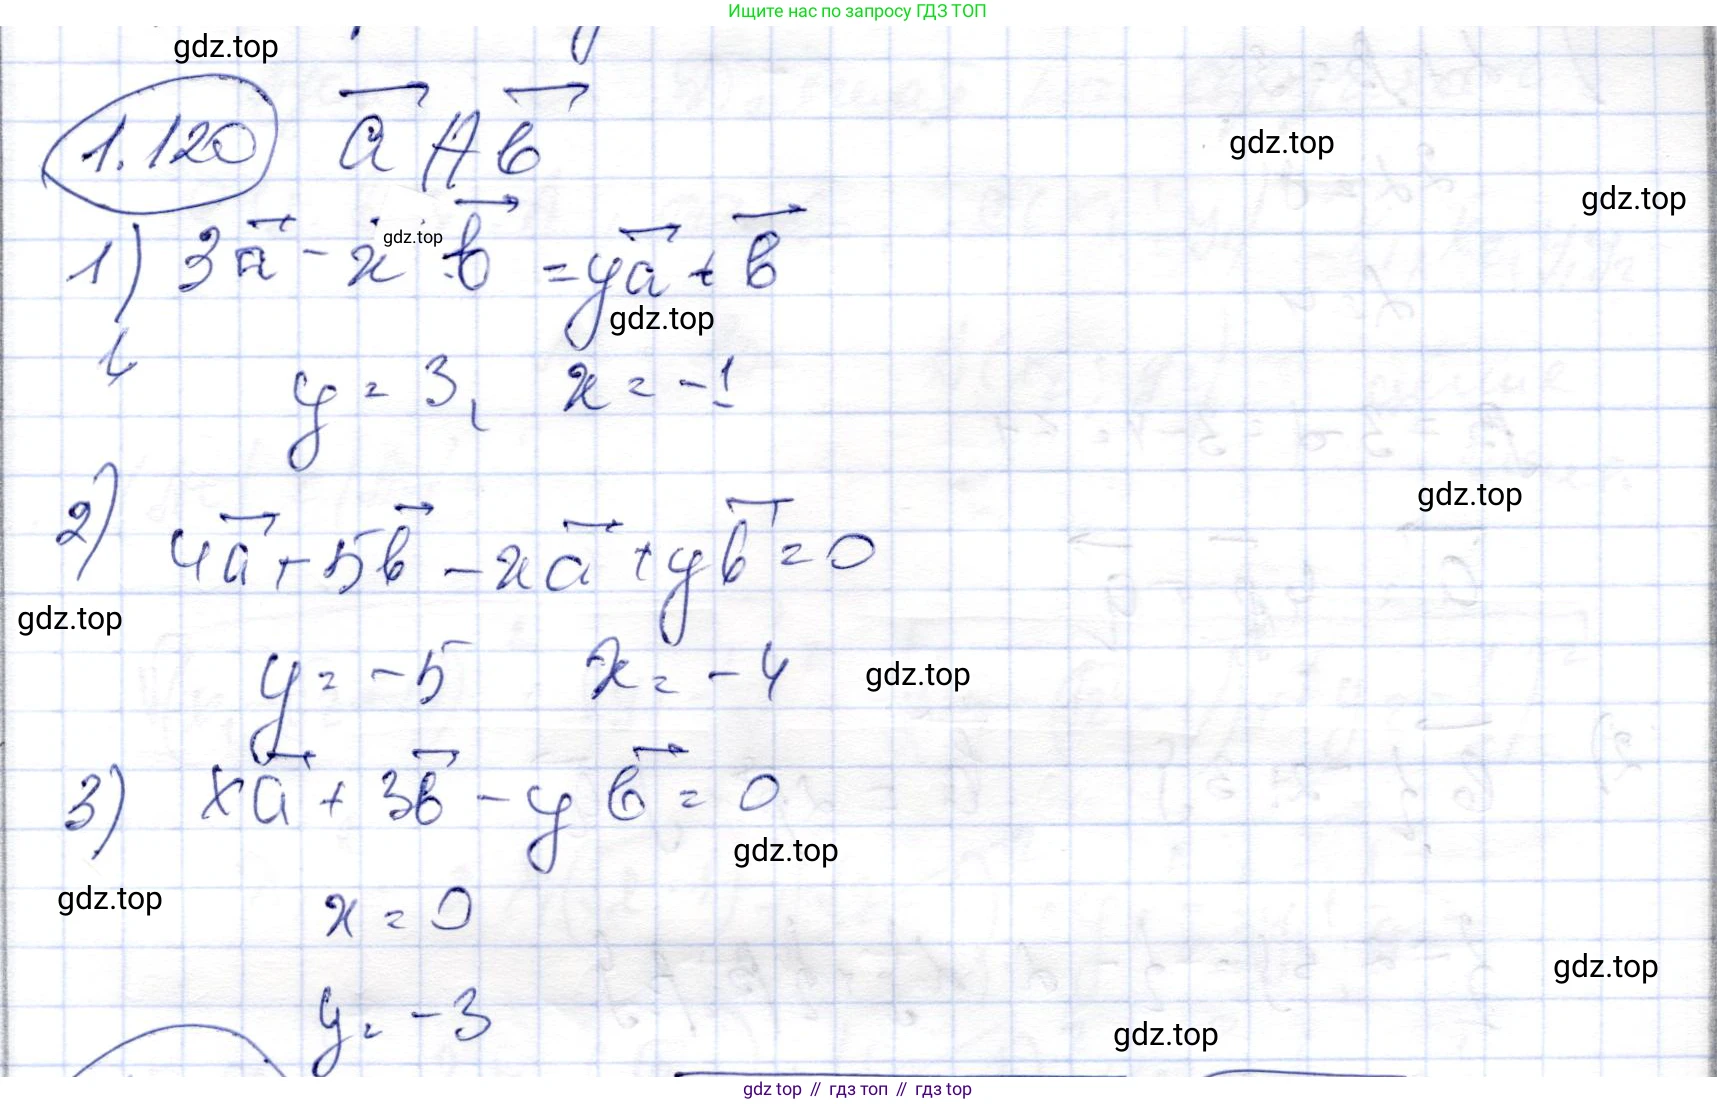 Ищите нас по запросу ГДЗ ТОП
gdz.top
1.120 a⃗ ∦ b⃗
gdz.top
gdz.top
1) 3a⃗ - x gdz.top b⃗ = ya⃗ + b⃗
gdz.top
y = 3, x = -1
gdz.top
2) 4a⃗ + 5b⃗ - xa⃗ + yb⃗ = 0
gdz.top
y = -5 x = -4
gdz.top
3) xa⃗ + 3b⃗ - yb⃗ = 0
gdz.top
gdz.top
x = 0
gdz.top
y = -3
gdz.top
gdz top // гдз топ // гдз top